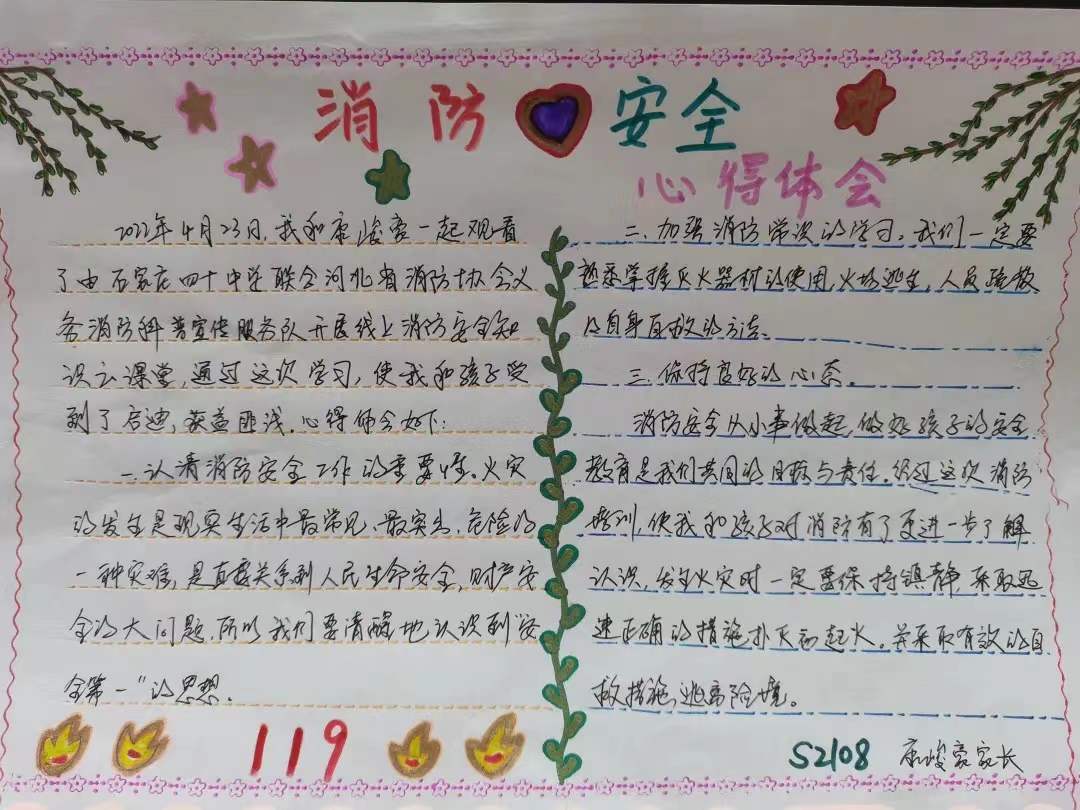 消防安全
心得体会
2022年4月23日,我和康峻豪一起观看
了由石家庄四十中学联合河北省消防协会义
务消防科普宣传服务队开展线上消防安全知
识云课堂,通过这次学习,使我和孩子受
到了启迪,获益匪浅.心得体会如下:
一、认清消防安全工作的重要性。火灾
的发生是现实生活中最常见、最突出、危险的
一种灾难,是直接关系到人民生命安全,财产安
全的大问题.所以我们要清醒地认识到"安
全第一"的思想.
二、加强消防常识的学习,我们一定要
熟悉掌握灭火器材的使用,火场逃生,人员疏散
的自身自救的方法.
三、保持良好的心态。
消防安全从小事做起,做好孩子的安全
教育是我们共同的目标与责任.经过这次消防
培训,使我和孩子对消防有了更进一步了解
认识,发生火灾时一定要保持镇静,采取迅
速正确的措施扑灭初起火。并采取有效的自
救措施,逃离险境。
119
S2108 康峻豪家长